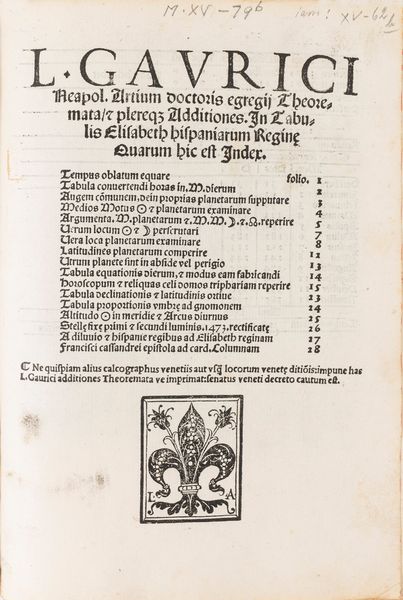 M·XV-79b
iam! XV-62b
L·GAVRICI
Neapol. Artium doctoris egregij Theore-
mata/⁊ plereqꝫ Additiones. In Tabu-
lis Elisabeth hispaniarum Reginę
Quarum hic est Index.
Tempus oblatum equare folio. 1
Tabula conuertendi horas in .M. dierum 2
Augem cõmunem, dein proprias planetarum supputare 3
Medios Motus ☉ ⁊ planetarum examinare 4
Argumenta .M. planetarum ⁊ .M. M. ☽. ⁊ .☊. reperire 5
Uerum locum ☉ ⁊ ☽ perscrutari 7
Uera loca planetarum examinare 8
Latitudines planetarum comperire 12
Utrum planete sint in abside vel perigio 13
Tabula equationis dierum, ⁊ modus eam fabricandi 14
Horoscopum ⁊ reliquas celi domos triphariam reperire 15
Tabula declinationis ⁊ latitudinis ortiue 23
Tabula proportionis vmbrę ad gnomonem 24
Altitudo ☉ in meridie ⁊ Arcus diurnus 25
Stellę fixę primi ⁊ secundi luminis .1473. rectificatę 26
A diluuio ⁊ hispanie regibus ad Elisabeth reginam 27
Francisci cassandrei epistola ad card. Columnam 28
ℂ Ne quispiam alius calcographus venetiis aut vsq̃ locorum venetę ditiõis: impune has
L. Gaurici additiones Theoremata ve imprimat: senatus veneti decreto cautum est.
L A